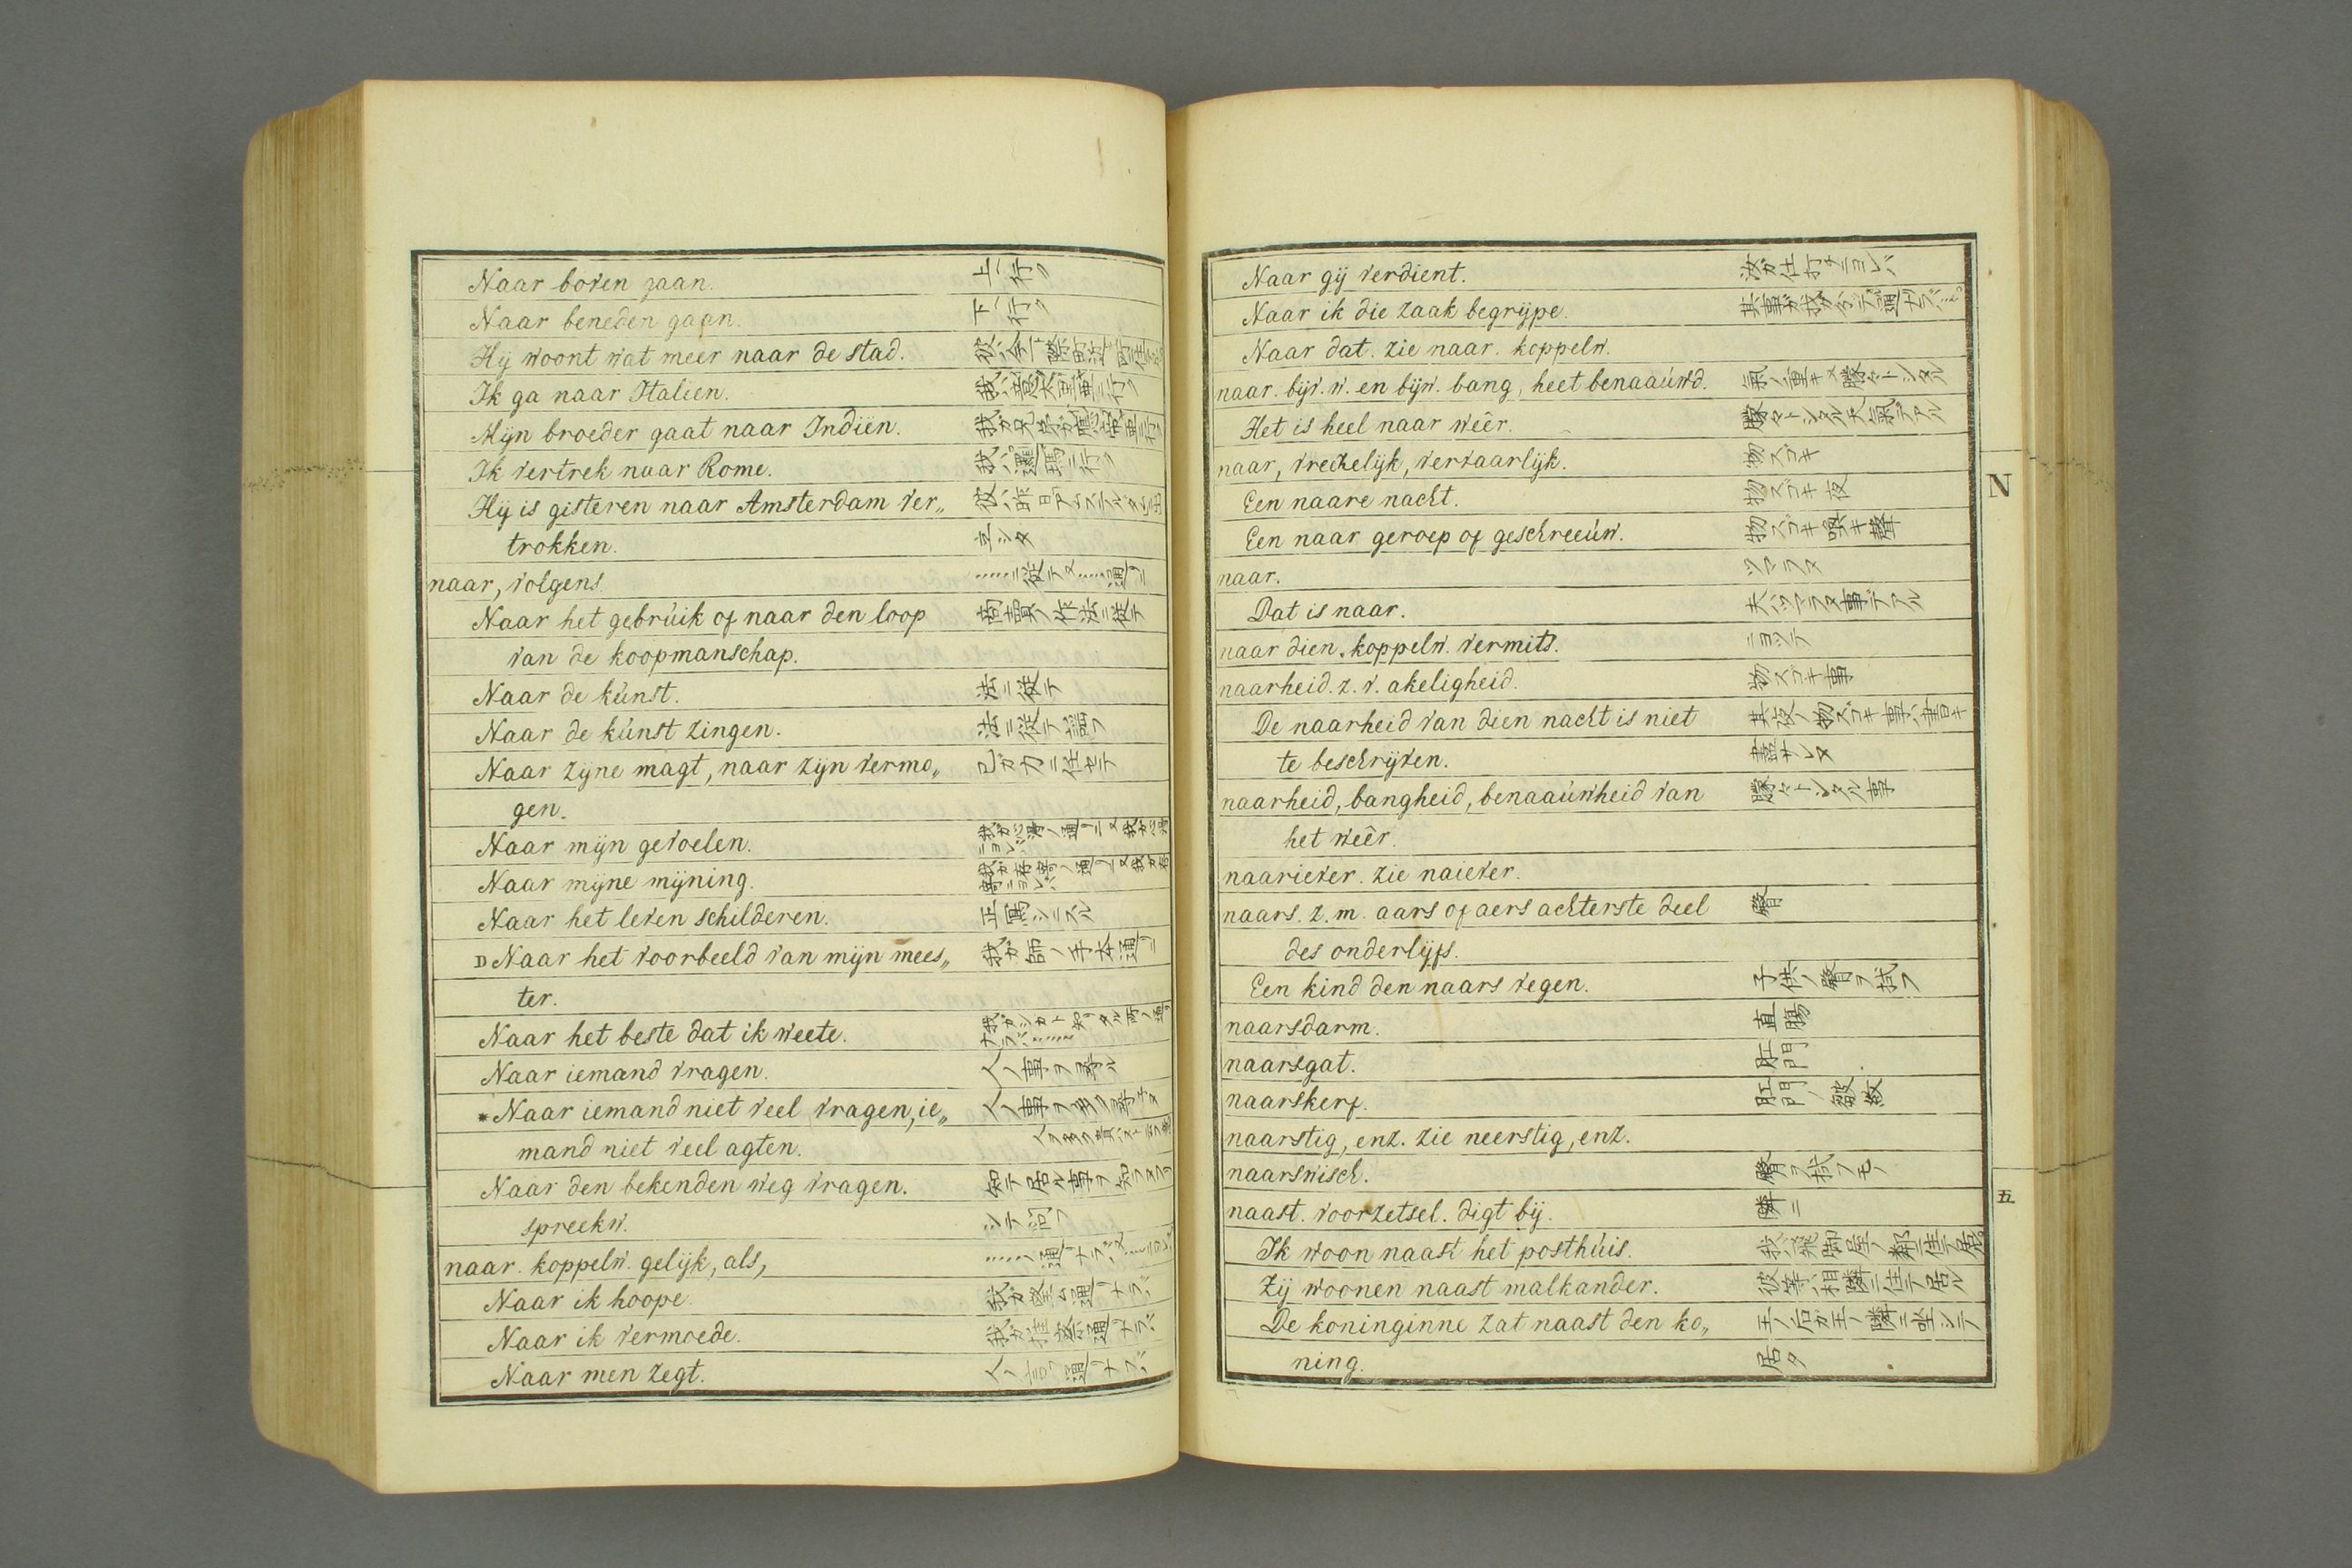 Naar boven gaan. 上ニ行ク
Naar beneden gaan. 下ニ行ク
Hij woont wat meer naar de stad.
Ik ga naar Italien. 我ハ意太里亜ニ行ク
Mijn broeder gaat naar Indiën.
Ik vertrek naar Rome. 我ハ邏瑪ニ行ク
Hij is gisteren naar Amsterdam ver„
trokken. 立シタ
naar, volgens. ……ニ従テ又……通リニ
Naar het gebrúik of naar den loop 商賣ノ作法ニ従テ
van de koopmanschap.
Naar de kúnst. 法ニ従テ
Naar de kúnst zingen. 法ニ従テ謡フ
Naar zijne magt, naar zijn vermo„ 己ガ力ニ任セテ
gen.
Naar mijn gevoelen.
Naar mijne mijning.
Naar het leven schilderen. 正写シニスル
D Naar het voorbeeld van mijn mees„ 我ガ師ノ手本通リニ
ter.
Naar het beste dat ik weete.
Naar iemand vragen. 人ノ事ヲ尋ル
* Naar iemand niet veel vragen, ie„
mand niet veel agten.
Naar den bekenden weg vragen. 知テ居ル事ヲ知ラヌフリ
spreekw. シテ問フ
naar. koppelw. gelijk, als,
Naar ik hoope. 我ガ望ム通リナラバ
Naar ik vermoede. 我ガ推察ノ通リナラバ
Naar men zegt. 人ノ言フ通リナラバ
Naar gij verdient. 汝ガ仕打チニヨレバ
Naar ik die zaak begrijpe.
Naar dat. zie naar. koppelw.
naar. bijv. w. en bijw. bang, heet benaaúwd.
Het is heel naar weêr. 朦々トシタル天氣デアル
naar, vreeselijk, vervaarlijk. 物スゴキ
Een naare nacht. 物スゴキ夜
Een naar geroep of geschreeúw. 物スゴキ喚キ聲
naar. ツマラヌ
Dat is naar. 夫ハツマラヌ事デアル
naar dien. koppelw. vermits. ニヨツテ
naarheid. z. v. akeligheid. 物スゴキ事
De naarheid van dien nacht is niet 其夜ノ物スゴキ事ハ書キ
te beschrijven. 盡サレヌ
naarheid, bangheid, benaaúwheid van 朦々トシタル事
het weêr.
naariever. zie naiever.
naars. z. m. aars of aers achterste deel 臀
des onderlijfs.
Een kind den naars vegen. 子供ノ臀ヲ拭フ
naarsdarm. 直腸
naarsgat. 肛門
naarskerf. 肛門ノ皺紋
naarstig, enz. zie neerstig, enz.
naarswisch. 臀ヲ拭フモノ
naast. voorzetsel. digt bij. 隣ニ
Ik woon naast het posthúis. 我ハ飛脚屋ノ鄰ニ住テ居ル
Zij woonen naast malkander. 彼等ハ相隣ニ住テ居ル
De koninginne zat naast den ko„ 王ノ后ガ王ノ隣ニ坐シテ
ning. 居タ
N
五